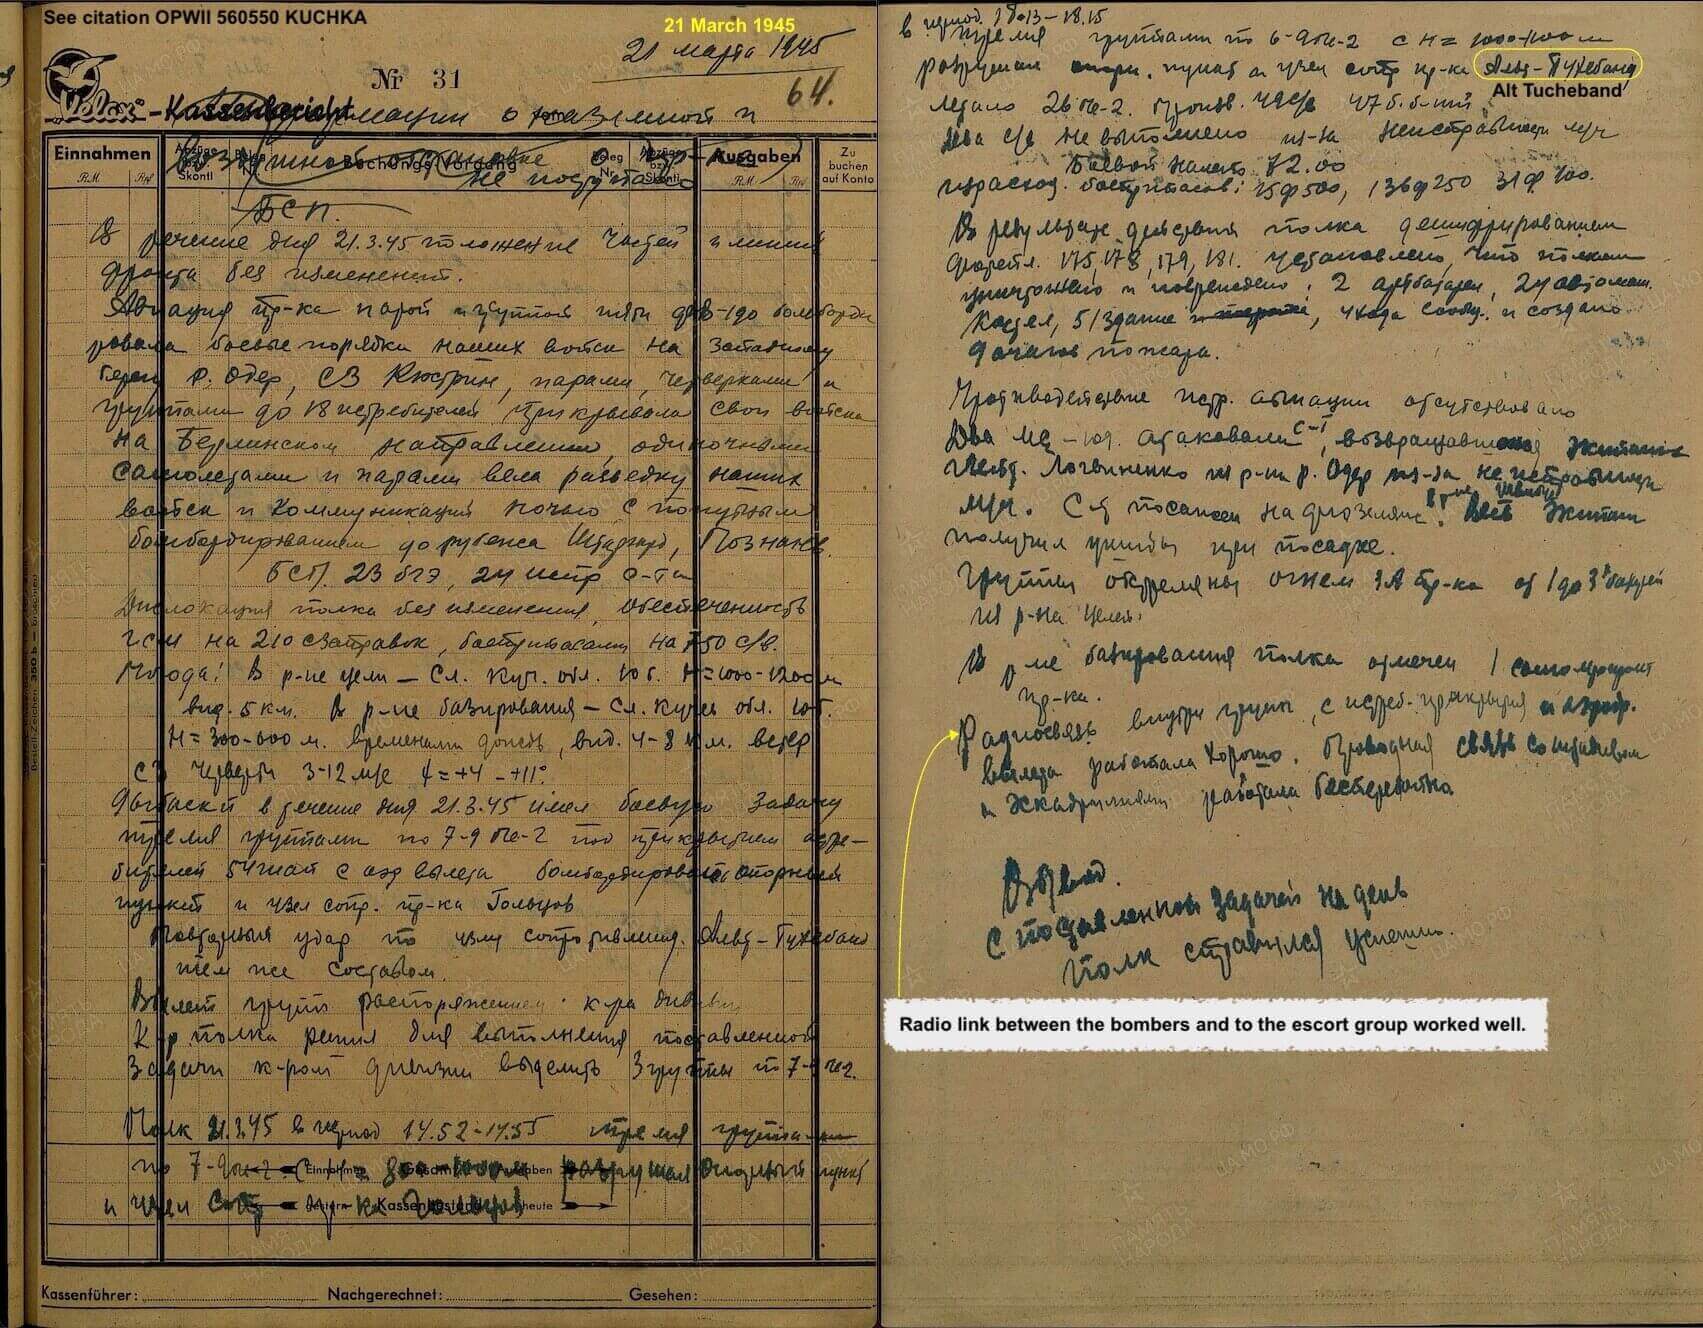 See citation OPWII 560550 KUCHKA
21 March 1945
21 марта 1945
Nr 31
64.
"Velox" - Kassenbericht
о наземной и
Einnahmen
RM
Rpf
Abzüge bzw. Skonti
Buchungs-Vorgang
Beleg Nr.
Abzüge bzw. Skonti
Ausgaben
RM
Rpf
Zu buchen auf Konto
не поступало
БСП.
В течение дня 21.3.45 положение частей и линия
фронта без изменений.
Авиация пр-ка парой и группой
боевые порядки наших войск на западному
берегу р. Одер, СЗ Кюстрин, парами, четверками и
группами до 18 истребителей прикрывала свои войска
на Берлинском направлении, одиночными
самолетами и парами вела разведку наших
войск и коммуникаций ночью с попутным
бомбардированием до рубежа Штаргард, Познань.
БСП. 23 бгэ, 24 истр с-та
Дислокация полка без изменения, обеспеченность
гсм на 210 с/заправок, боеприпасами на 750 с/в.
Погода: В р-не цели – Сл. куч. обл. 10 б. H=1000-1200 м
вид. 5 км. В р-не базирования – Сл. куч. обл. 10 б.
временами дождь, вид. 4-8 км. ветер
СЗ четверти 3-12 м/с t=+4 - +11°
в течение дня 21.3.45 имел боевую задачу
тремя группами по 7-9 Пе-2 под прикрытием истре-
бителей с аэр вылета бомбардировать опорный
пункт и узел сопр. пр-ка Гольцов
Повторный удар по узлу сопротивления Альт-Тухебанд
тем же составом.
Вылет групп распоряжением к-ра дивизии
К-р полка решил для выполнения поставленной
задачи к-ром дивизии выделить 3 группы по 7-9 Пе2.
Полк 21.3.45 в период 14.52-14.55 тремя группами
по 7-9 Пе-2 с H= 800-1000 м разрушал опорный пункт
и узел сопр. пр-ка Гольцов
Einnahmen Gesamt Ausgaben
gestern Kassenbestand heute
Kassenführer:
Nachgerechnet:
Gesehen:
в период 18.13-18.15
тремя группами по 6-9 Пе-2 с H=
разрушал опорн. пункт и узел сопр пр-ка Альт-Тухебанд
Alt Tucheband
летало 26 Пе-2. Произв. 49 с/в 47 б.
Два с/в не выполнено из-за неисправности м/ч
Боевой налет 72.00
израсход. боеприпасов: 15ф500, 136ф250 31ф100.
В результате действия полка дешифрированием
фотопл. 175, 178, 179, 181. установлено, что полком
уничтожено и повреждено: 2 артбатареи, 24 автомаш.
51 здание, 4 хода сообщ. и создано
9 очагов пожара.
Противодействие истр. авиации отсутствовало
Два Ме-109. атаковали с-т, возвращавшегося экипажа
Логвиненко из р-на р. Одер из-за неисправности
м/ч. С-т посажен на фюзеляж. Весь экипаж
получил ушибы при посадке.
Группы обстреляны огнем ЗА пр-ка от 1 до 3х батарей
из р-на цели.
В р-не базирования полка отмечен 1 самолетопролет
пр-ка.
Радиосвязь внутри групп, с истреб. прикрытия и аэродр.
вылета работала хорошо. Проводная связь со штабом
и эскадрильями работала бесперебойно
Вывод.
С поставленной задачей на день
полк справился успешно.
Radio link between the bombers and to the escort group worked well.